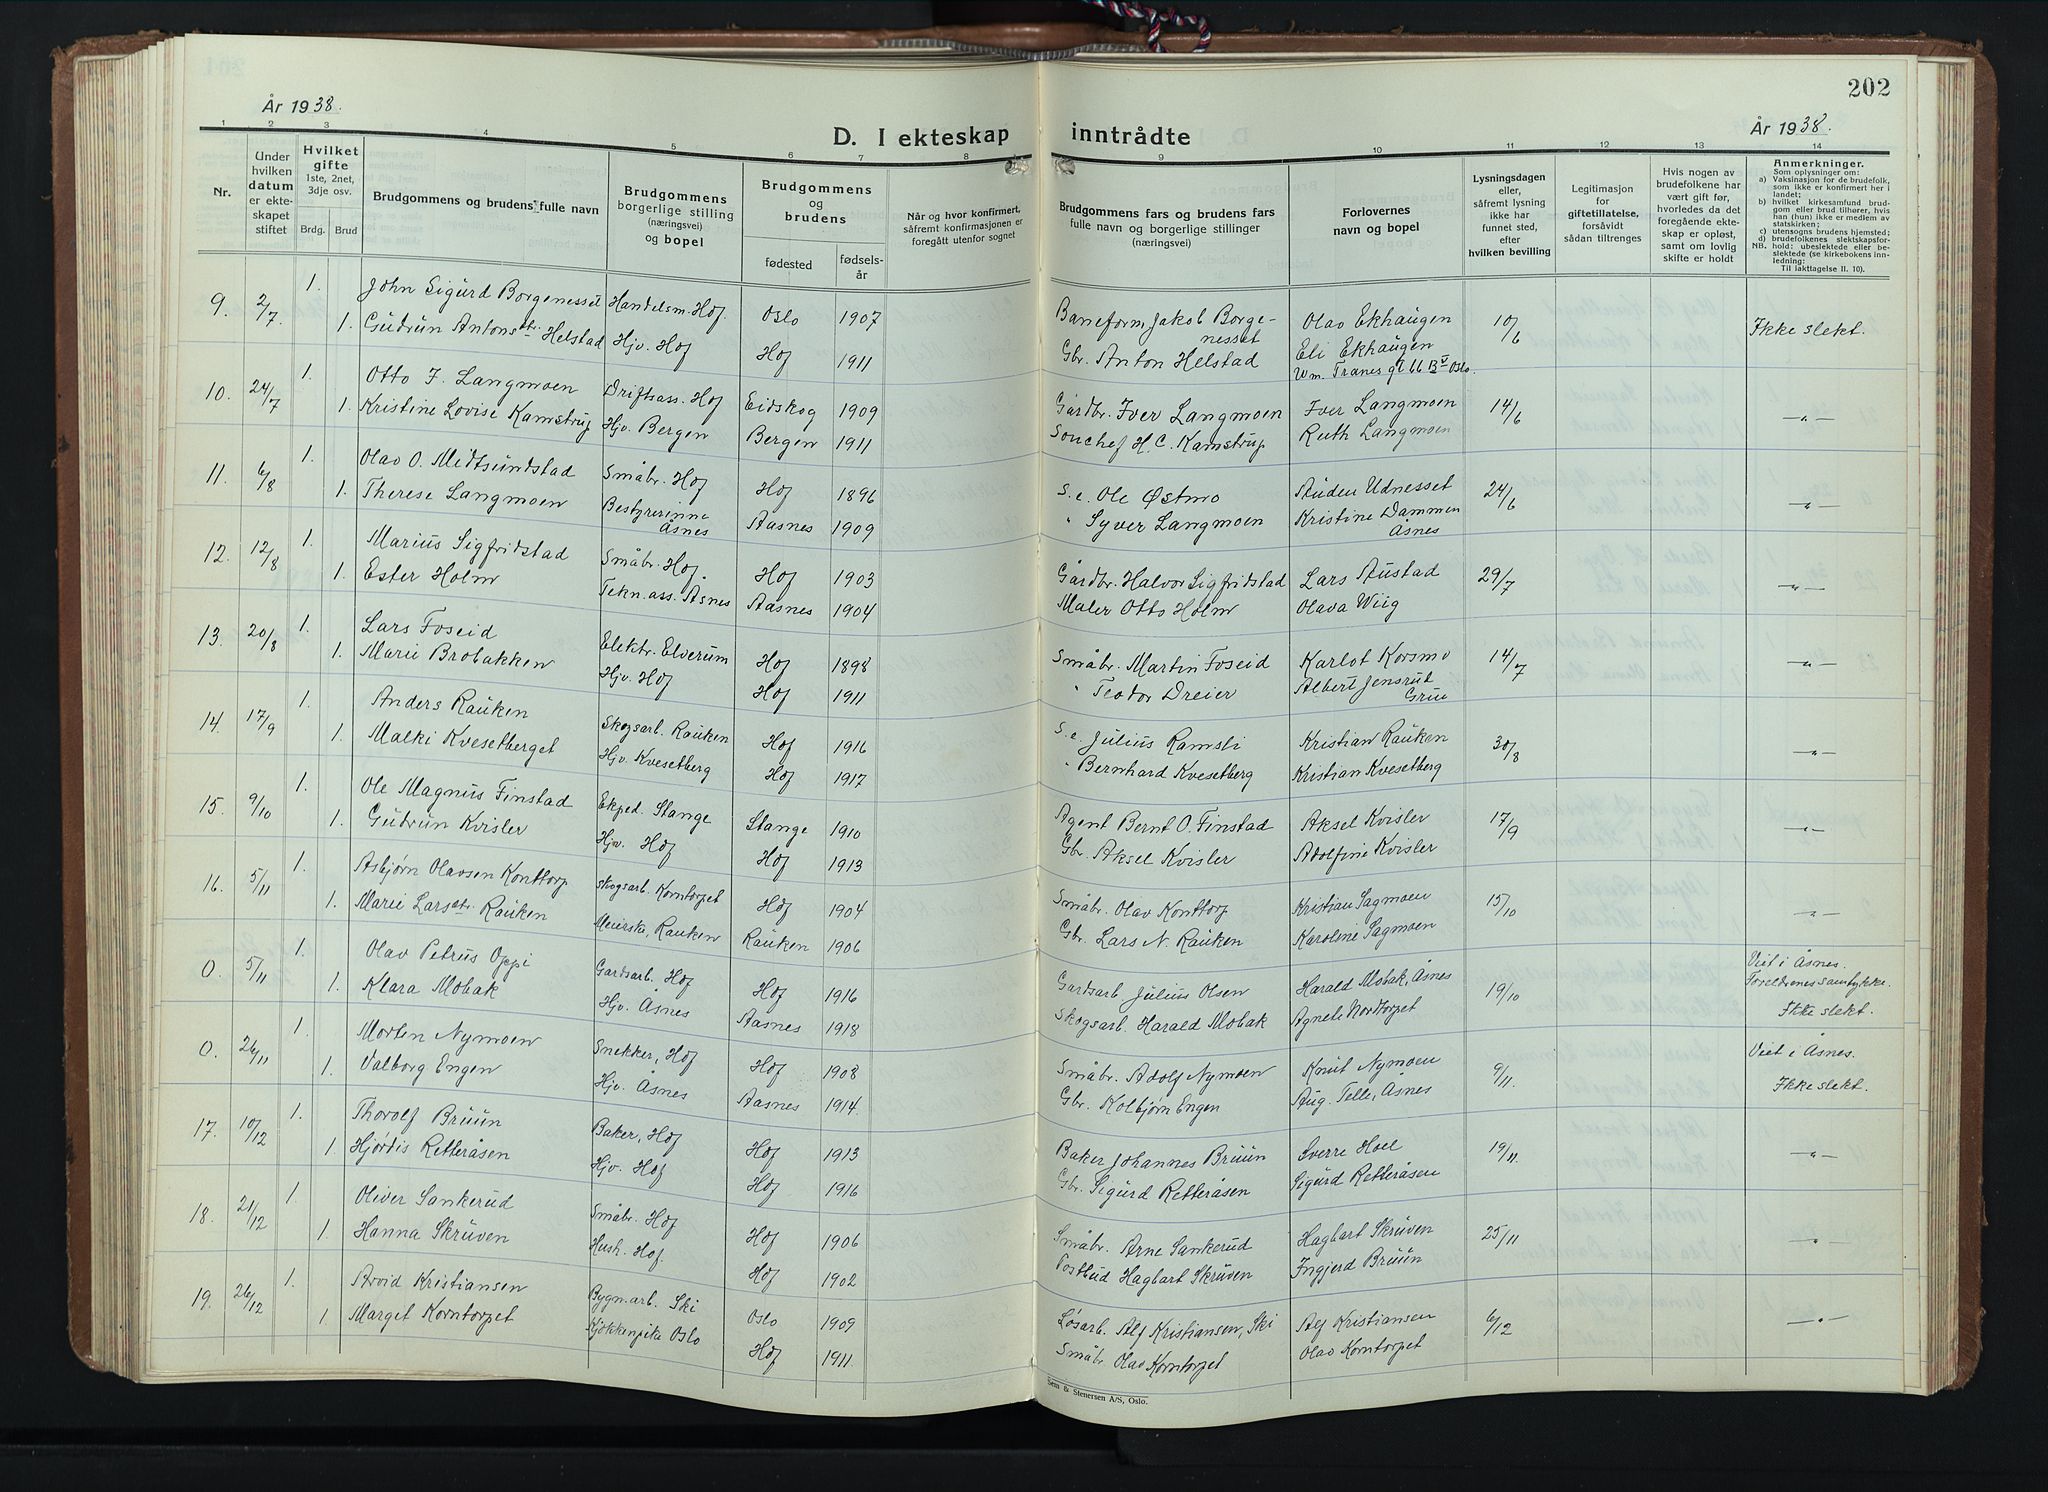 202
År 1938.
År 1938.
D. I ekteskap inntrådte
1 2 3 4 5 6 7 8 9 10 11 12 13 14
Nr.
Under hvilken datum er ekteskapet stiftet
Hvilket gifte 1ste, 2net, 3dje osv.
Brdg. Brud
Brudgommens og brudens fulle navn
Brudgommens borgerlige stilling (næringsvei) og bopel
Brudgommens og brudens
fødested fødselsår
Når og hvor konfirmert, såfremt konfirmasjonen er foregått utenfor sognet
Brudgommens fars og brudens fars fulle navn og borgerlige stillinger (næringsvei)
Forlovernes navn og bopel
Lysningsdagen eller, såfremt lysning ikke har funnet sted, efter hvilken bevilling
Legitimasjon for giftetillatelse, forsåvidt sådan tiltrenges
Hvis nogen av brudefolkene har vært gift før, hvorledes da det foregående ekteskap er opløst, samt om lovlig skifte er holdt
Anmerkninger.
Som oplysninger om:
a) Vaksinasjon for de brudefolk, som ikke er konfirmert her i landet;
b) hvilket kirkesamfund brudgom eller brud tilhører, hvis han (hun) ikke er medlem av statskirken;
c) utensogns brudens hjemsted;
d) brudefolkenes slektskapsforhold: ubeslektede eller beslektede (se kirkebokens innledning: Til iakttagelse II. 10).
NB.
9. 2/7 1. John Sigurd Borgenesset Handelsm. Hof Oslo 1907 Baneform. Jakob Borgenesset Olav Ekhaugen 10/6 Ikke slekt.
1. Gudrun Antonsdtr. Helstad Hjv. Hof Hof 1911 Gbr. Anton Helstad Eli Ekhaugen
Wm. Tranes gt 66 B V Oslo.
10. 24/7 1. Otto F. Langmoen Driftsass. Hof Eidskog 1909 Gårdbr. Iver Langmoen Iver Langmoen 14/6 -"-
1. Kristine Lovise Kamstrup Hjv. Bergen Bergen 1911 Souchef H. C. Kamstrup Ruth Langmoen
11. 6/8 1. Olav O. Midtsundstad Småbr. Hof Hof 1896 S.e. Ole Østmo Auden Udnesset 24/6 -"-
1. Therese Langmoen Bestyrerinne Åsnes Aasnes 1909 " Syver Langmoen Kristine Dammen Åsnes
12. 12/8 1. Marius Sigfridstad Småbr. Hof Hof 1903 Gårdbr. Halvor Sigfridstad Lars Austad 29/7 -"-
1. Ester Holm Tekn. ass. Åsnes Aasnes 1904 Maler Otto Holm Olava Wiig
13. 20/8 1. Lars Foseid Elektr. Elverum Hof 1898 Småbr. Martin Foseid Karlot Korsmo 14/7 -"-
1. Marie Brobakken Hjv. Hof Hof 1911 " Teodor Dreier Albert Jensrud Grue
14. 17/9 1. Anders Rauken Skogsarb. Rauken Hof 1916 S.e. Julius Ramsli Kristian Rauken 30/8 -"-
1. Malki Kvesetberget Hjv. Kvesetberg Hof 1917 " Bernhard Kvesetberg Kristian Kvesetberg
15. 9/10 1. Ole Magnus Finstad Ekped. Stange Stange 1910 Agent Bernt O. Finstad Aksel Kvisler 17/9 -"-
1. Gudrun Kvisler Hjv. Hof Hof 1913 Gbr. Aksel Kvisler Adolfine Kvisler
16. 5/11 1. Asbjørn Olavsen Konttorp Skogsarb. Korntorpet Hof 1904 Småbr. Olav Konttorp Kristian Sagmoen 15/10 -"-
1. Marie Larsdtr. Rauken Meierske, Rauken Rauken 1906 Gbr. Lars N. Rauken Karoline Sagmoen
0. 5/11 1. Olav Petrus Oppi Gardsarb. Hof Hof 1916 Gardsarb. Julius Olsen Harald Mobak, Åsnes 19/10 Viet i Åsnes. Foreldrenes samtykke.
1. Klara Mobak Hjv. Åsnes Aasnes 1918 Skogsarb. Harald Mobak Agnete Nordtorpet Ikke slekt.
0. 26/11 1. Morten Nymoen Snekker, Hof Hof 1908 Småbr. Adolf Nymoen Knut Nymoen 9/11. Viet i Åsnes.
1. Valborg Engen Hjv. Åsnes Aasnes 1914 Gbr. Kolbjørn Engen Aug. Telle, Åsnes Ikke slekt.
17. 10/12 1. Thorolf Bruun Baker, Hof Hof 1913 Baker Johannes Bruun Sverre Hoel 19/11. -"-
1. Hjørdis Retteråsen Hjv. Hof Hof 1916 Gbr. Sigurd Retteråsen Sigurd Retteråsen
18. 21/12 1. Oliver Sankerud Småbr. Hof Hof 1906 Småbr. Arne Sankerud Hagbart Skruven 25/11 -"-
1. Hanna Skruven Hush. Hof. Hof 1902 Postbud Hagbart Skruven Ingjerd Bruun
19. 26/12 1. Arvid Kristiansen Bygn.arb. Ski Oslo 1909 Løsarb. Alf Kristiansen, Ski Alf Kristiansen 6/12 -"-
1. Margit Korntorpet Kjøkkenpike Oslo Hof 1911 Småbr. Olav Korntorpet Olav Korntorpet
Sem & Stenersen A/S, Oslo.